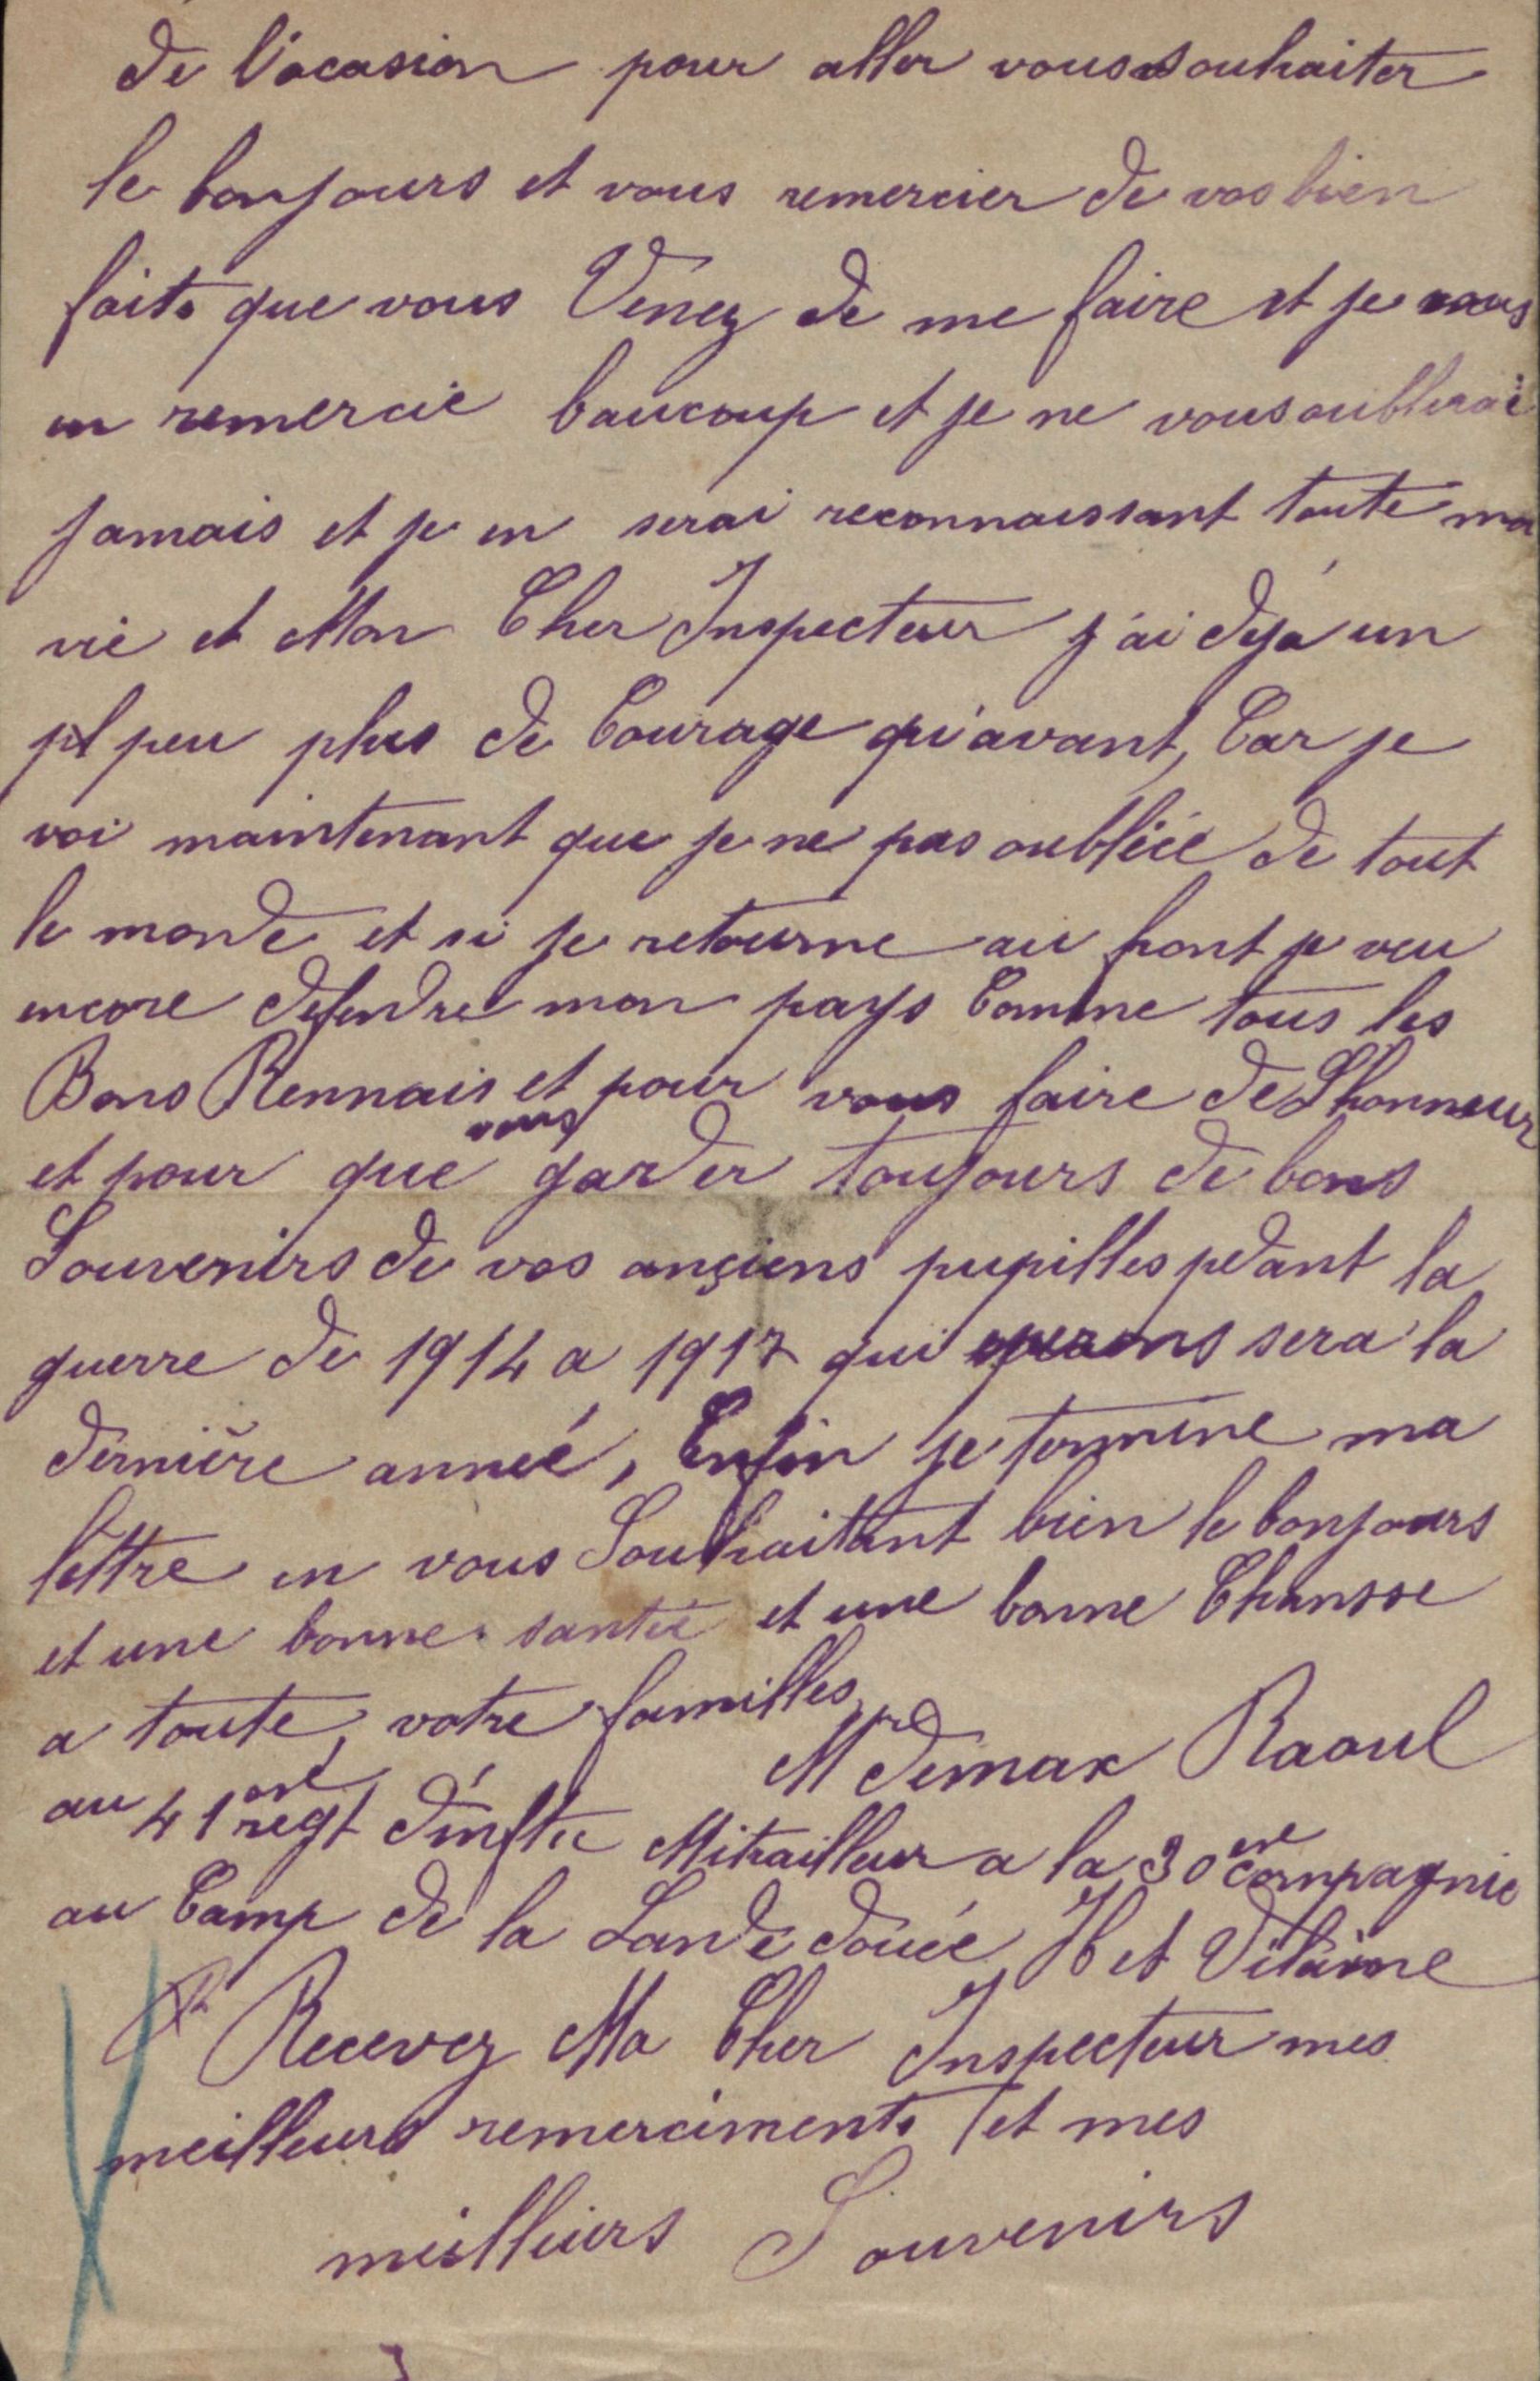 de l'ocasion pour aller vous souhaiter
le bonjours et vous remercier de vos bien
faits que vous Venez de me faire et je vous
en remercie baucoup et je ne vous oublierai
jamais et je en serai reconnaissant toute ma
vie et Mon Cher Inspecteur j'ai déjà un
pl peu plus de Courage qu'avant, Car je
voi maintenant que je ne pas oubliée de tout
le monde et si je retourne au front je veu
encore defendre mon pays Comme tous les
Bons Rennais et pour vous faire de Lhonneur
et pour que vous garder toujours de bons
Souvenirs de vos ançiens pupilles pedant la
guerre de 1914 a 1917 qui sera la
dernière anneé, Enfin je termine ma
lettre en vous Souhaitant bien le bonjours
et une bonne santée et une bonne Chansse
a toute votre familles
Mr demax Raoul
au 41 regt d'inftie Mitrailleur a la 30 eme compagnie
au Camp de la Lande douée Il et Vilaine
R Recevez Ma Cher Inspecteur mes
meilleurs remerciments et mes
meilleurs Souvenirs